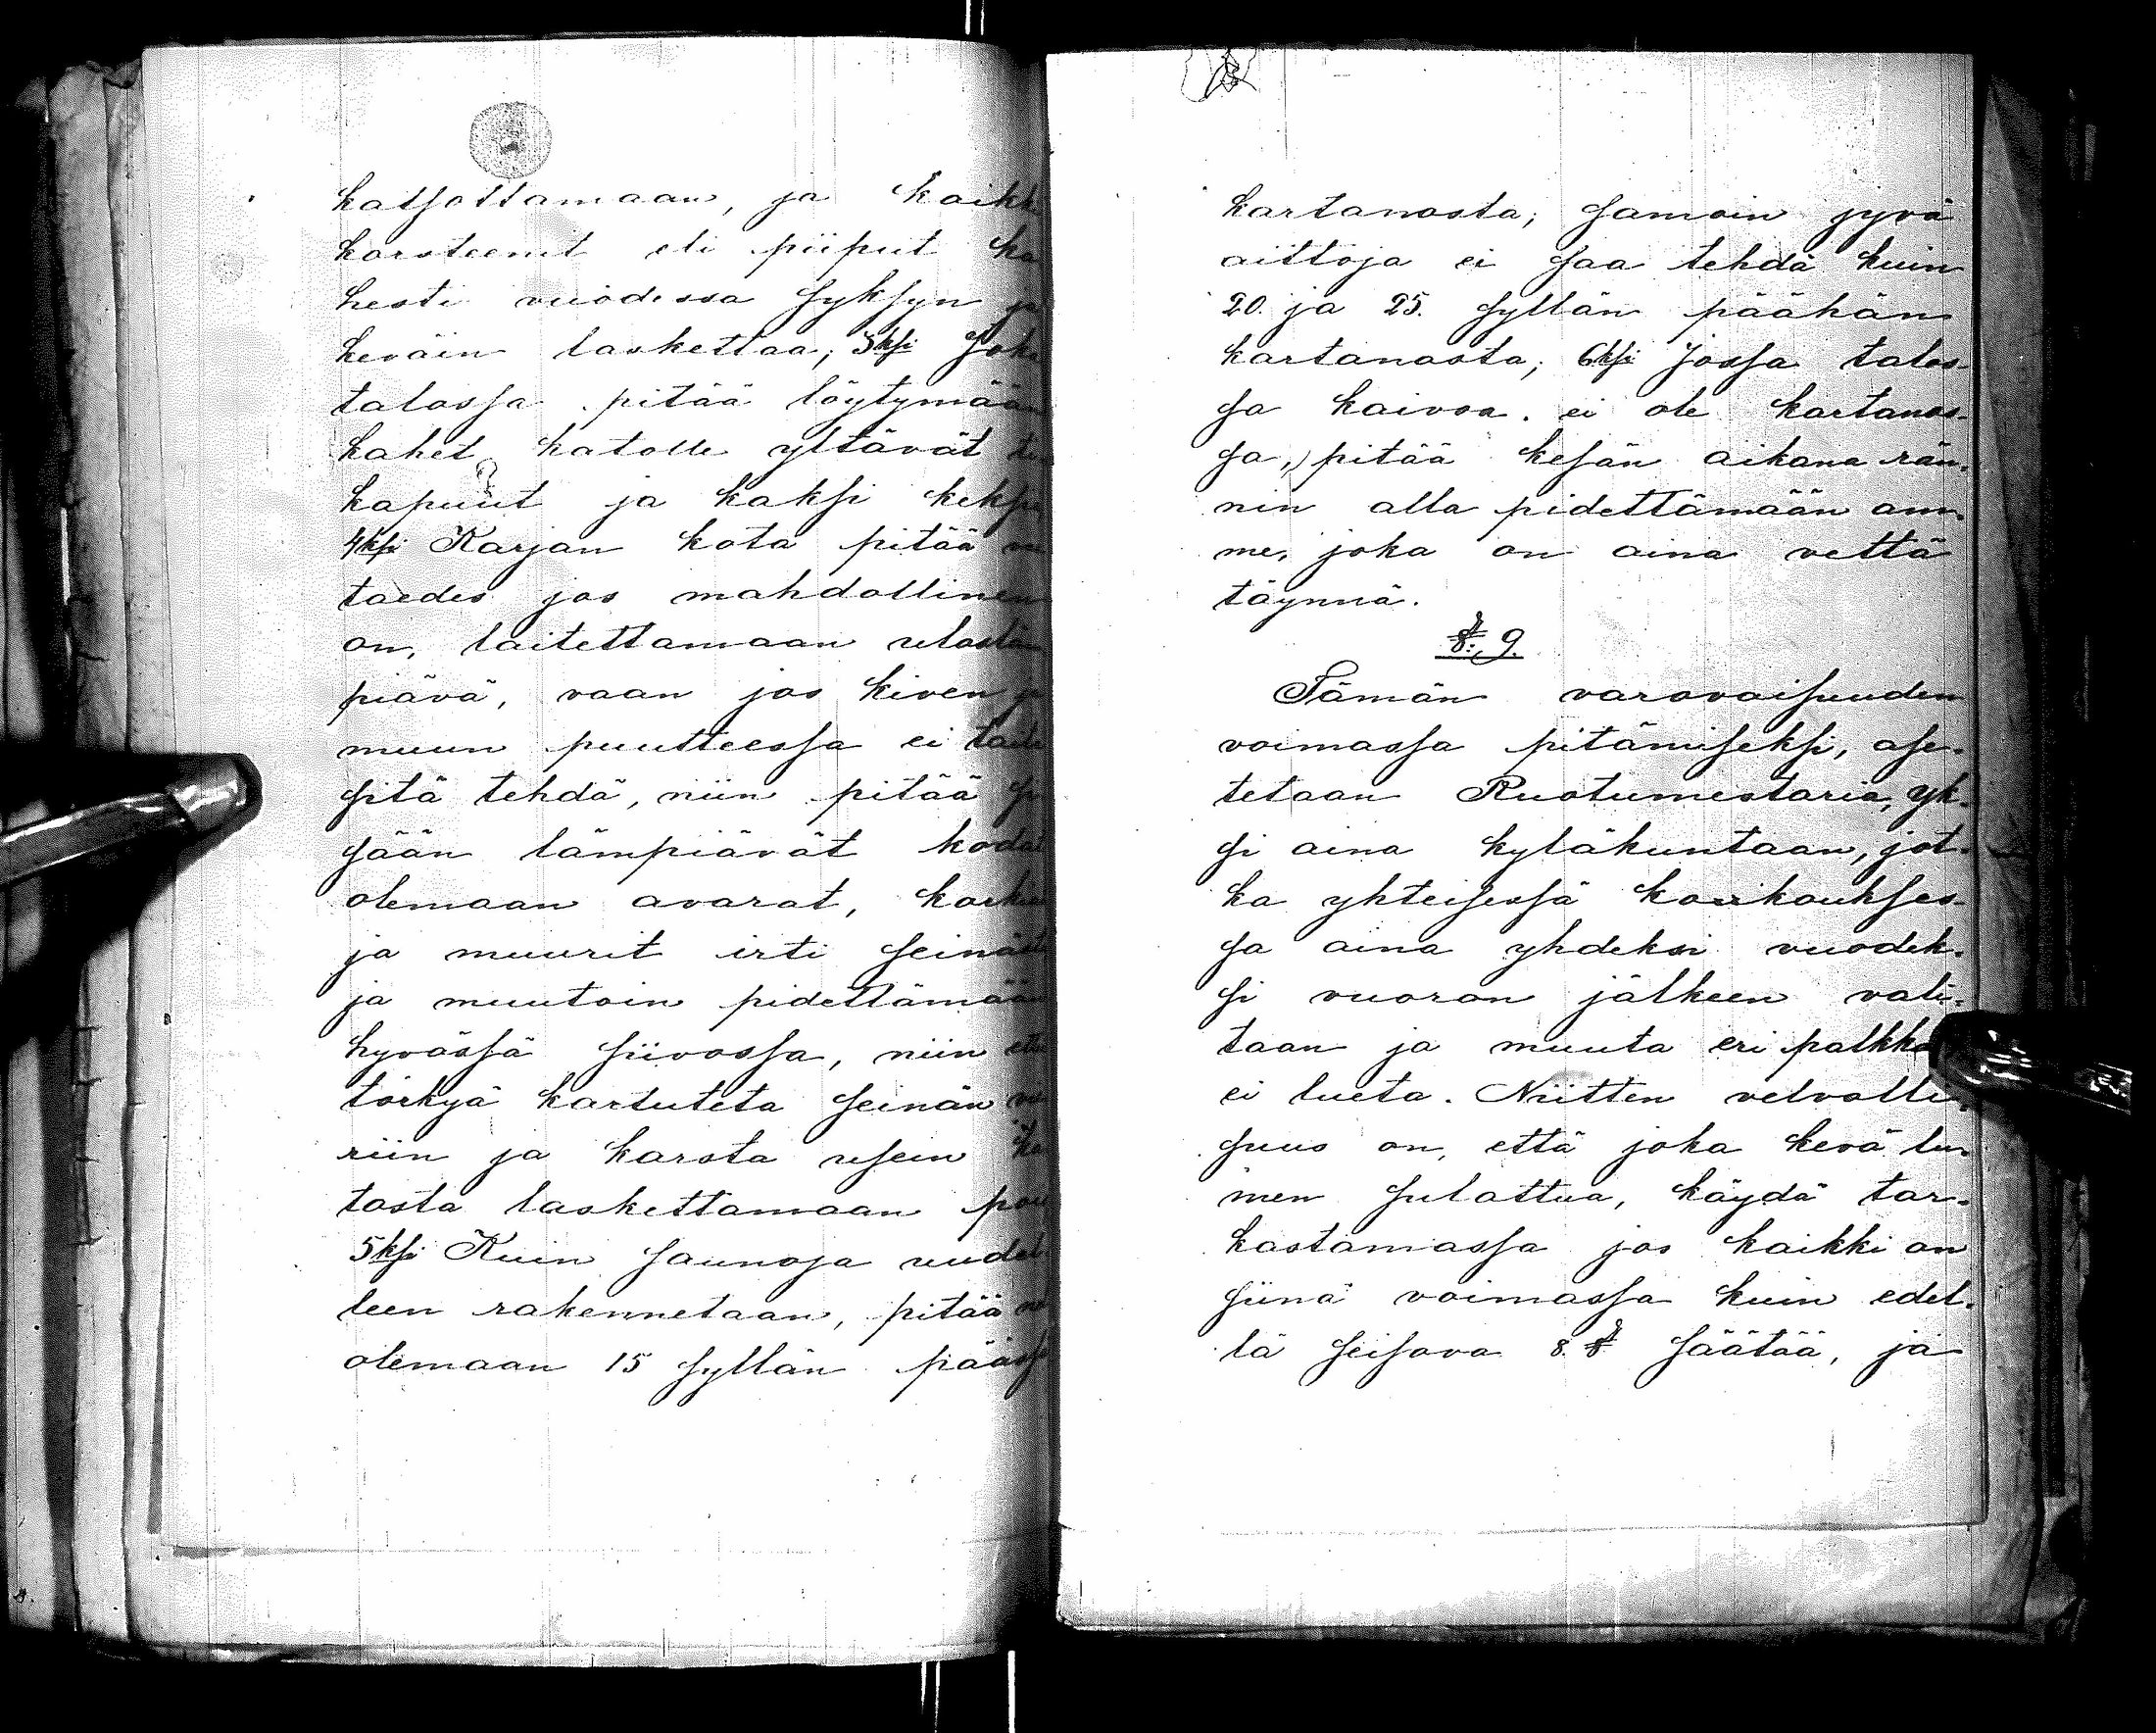 katsottamaan, ja kaikk
karsteenit eli piiput ka
hesti vuodessa syksyn ja
keväin laskettaa; 3ksi Jok
talossa pitää löytymään
kahet katolle yltävät
kapuut ja kaksi keks
4ksi Karjan kota pitää
taedes jos mahdollinen
on, laitettamaan ulos
piävä, vaan jos kiven
muun puutteessa ei
sitä tehdä, niin pitää
sään lämpiävät koda
olemaan avarat,
ja muurit irti seinäst
ja muutoin pidettämään
hyvässä siivossa, niin
törkyä kartuteta seinän
riin ja karsta usein
tosta laskettamaan
5ksi Kuin saunoja uudel
leen rakennetaan, pitää
olemaan 15 syllän pääss
kartanosta; samoin jyvä
aittoja ei saa tehdä kuin
20. ja 25. syllän päähän
kartanosta; 6ksi Jossa talos-
sa kaivoa ei ole kartanos-
sa, pitää kesän aikana rän-
nin alla pidettämään am-
me, joka on aina vettä
täynnä.
§. 9.
Tämän varovaisuuden
voimassa pitämiseksi, ase-
tetaan Ruotumestaria, yk-
si aina kyläkuntaan, jot-
ka yhteisessä koukoukses-
sa aina yhdeksi vuodek-
si vuoron jälkeen vali-
taan ja muuta eri palkka
ei lueta. Niitten velvolli-
suus on, että joka kevä lu-
men sulattua, käydä tar-
kastamassa jos kaikki on
siinä voimassa kuin edel-
lä seisova 8. § säätää, ja